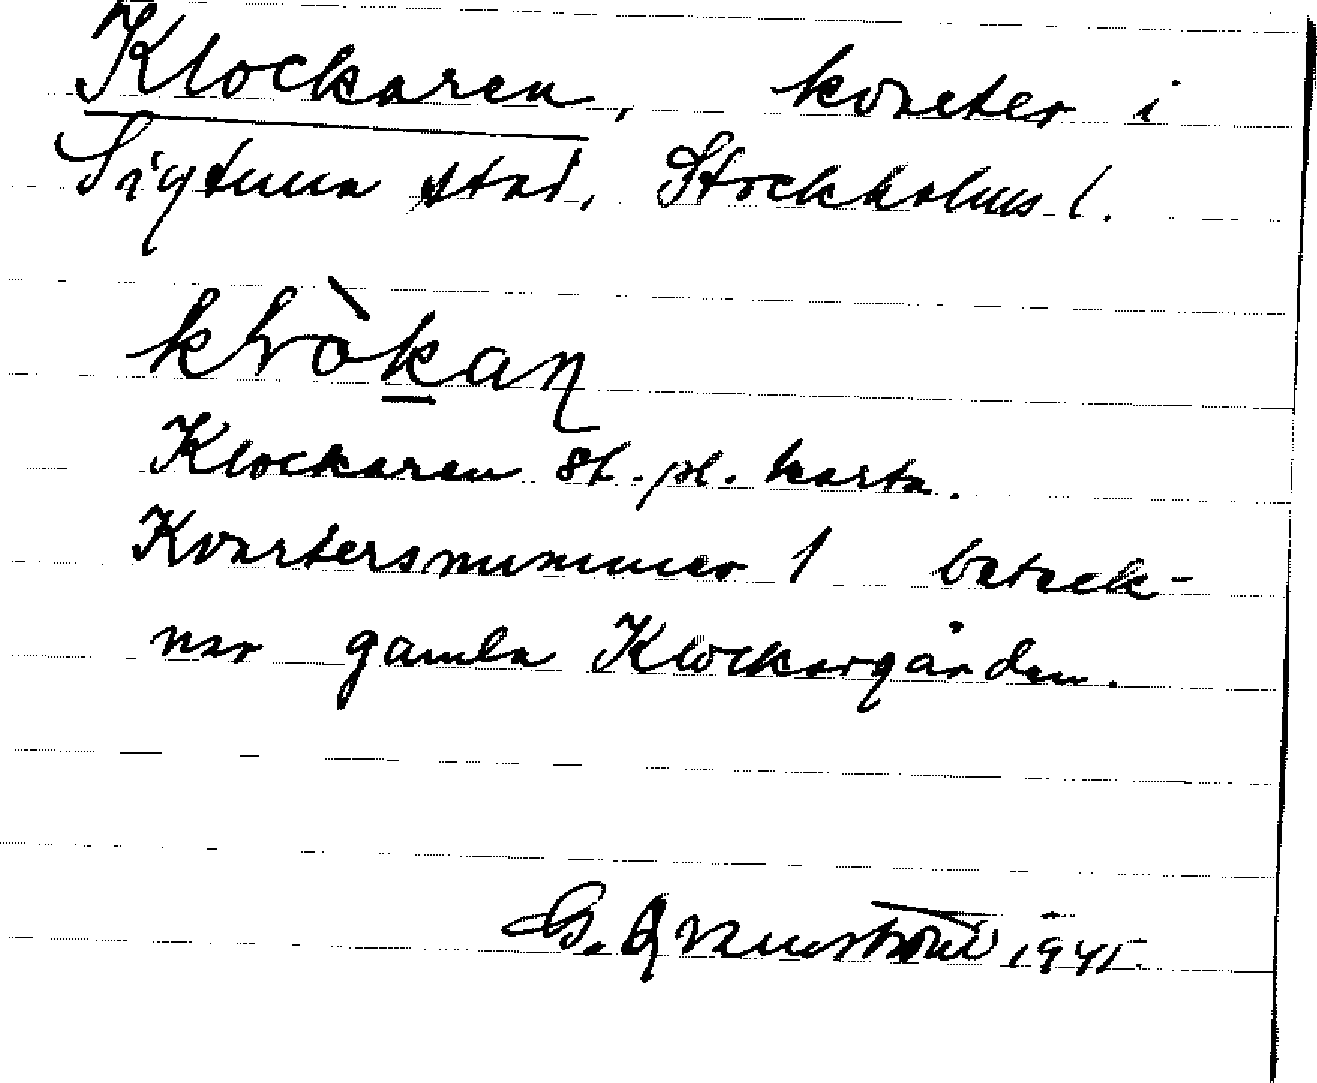 Klockaren, kvarter i
Sigtuna stad, Stockholms l.
Klockaren st. pl. karta.
Kvartersnummer 1 beteck-
nar gamla Klockargården.
G. 1945.